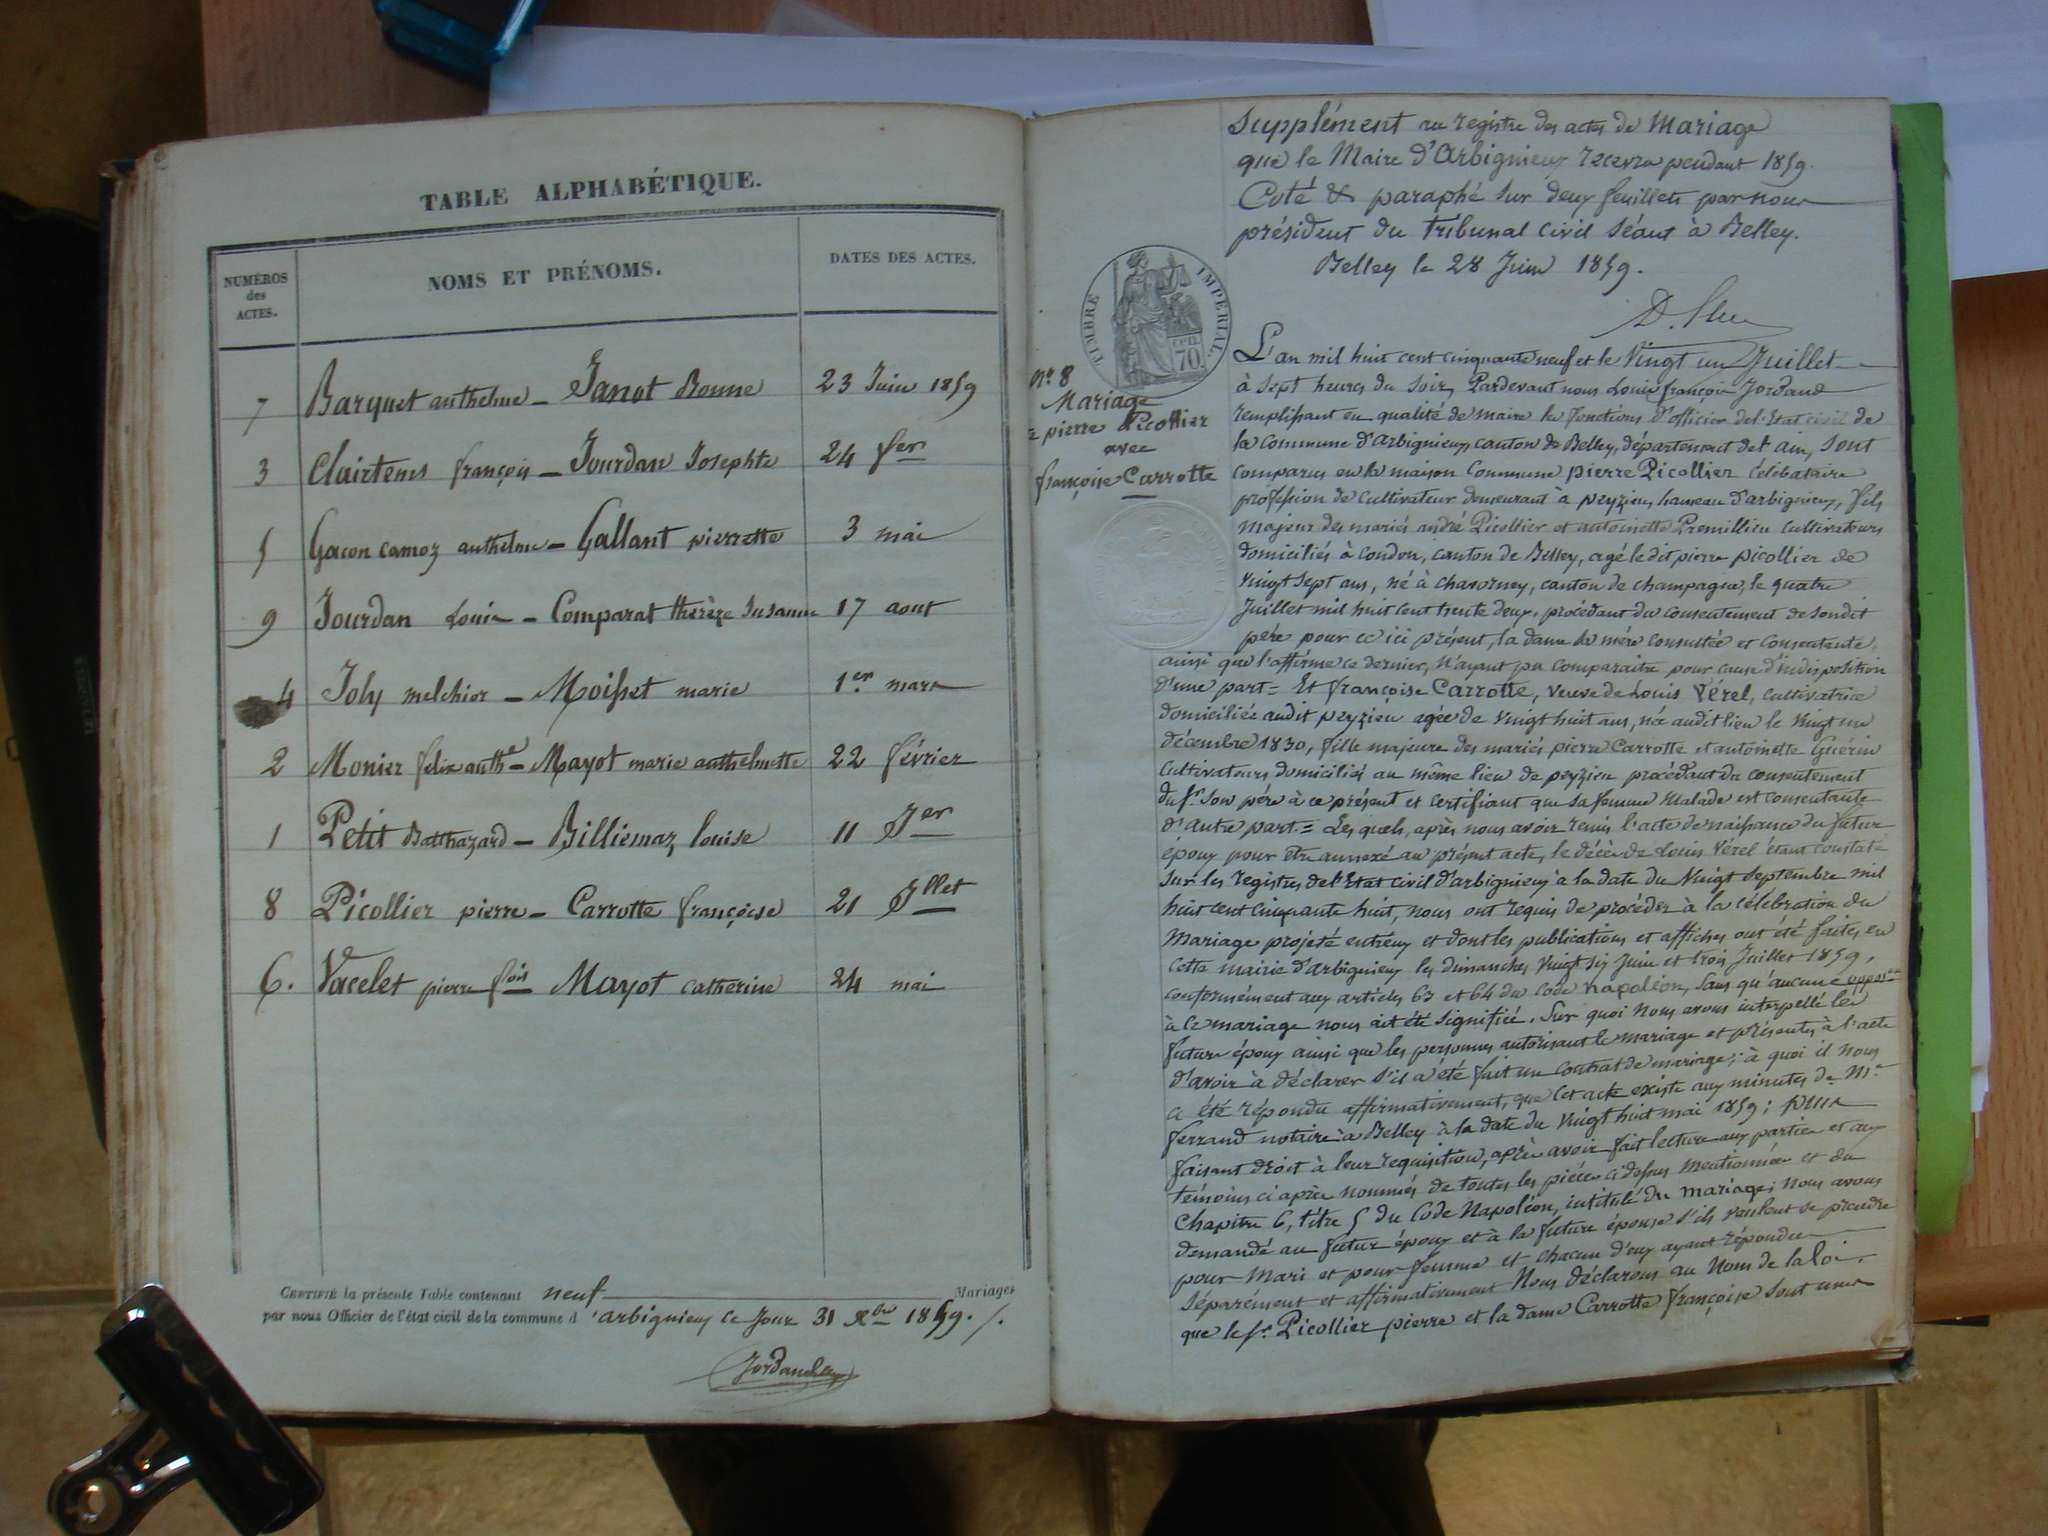 TABLE ALPHABÉTIQUE.
NUMÉROS des ACTES. NOMS ET PRÉNOMS. DATES DES ACTES.
7 Barquet anthelme - Janot Bonne 23 Juin 1859
3 Clairtems françois - Jourdan Josephte 24 fer
5 Gacon camoz anthelme - Gallant pierrette 3 mai
9 Jourdan Louis - Comparat thérèze Susanne 17 aout
4 Joly melchior - Moisset marie 1er mars
2 Monier felix anthe - Mayot marie anthelmette 22 février
1 Petit Balthazard - Billiemaz louise 11 Jer
8 Picollier pierre - Carrotte françoise 21 Jllet
6. Vacelet pierre fois Mayot Catherine 24 mai
CERTIFIÉ la présente Table contenant neuf Mariages
par nous Officier de l'état civil de la commune d'arbignieu ce jour 31 Xbre 1859./.
Supplément au registre des actes de Mariage
que le Maire d'Arbignieux recevra pendant 1859.
Coté & paraphé sur deux feuillets par nous
président du Tribunal Civil séant à Belley.
Belley le 28 Juin 1859.
TIMBRE IMPÉRIAL.
70.
L'an mil huit cent cinquante neuf et le Vingt un Juillet
n° 8
à sept heures du soir, Pardevant nous Louis françois Jordand
Mariage
remplissant en qualité de maire les fonctions d'officier de l'Etat civil de
pierre Picollier
la Commune d'arbignieux, canton de Belley, département de l'ain, sont
avec
comparus en la maison Commune pierre Picollier Célibataire
françoise Carrotte
profession de Cultivateur demeurant à peyzieu, hameau d'arbignieu, fils
majeur des mariés andré Picollier et antoinette Premillieu cultivateurs
domiciliés à condon, canton de Belley, agé ledit pierre picollier de
Vingt sept ans, né à chavorney, canton de champagne, le quatre
Juillet mil huit cent trente deux. procédant du consentement de sondit
père pour ce ici présent, la dame sa mère consultée et Consentente
ainsi que l'affirme ce dernier, n'ayant pu comparaitre pour cause d'indisposition
d'une part = Et françoise Carrotte, veuve de Louis Vérel, cultivatrice
domiciliée audit peyzieu agée de vingt huit ans, née audit lieu le Vingt un
décembre 1830, fille majeure des mariés pierre Carrotte et antoinette Guérin
Cultivateurs domiciliés au même lieu de peyzieu procédant du consentement
du sr son père à ce présent et certifiant que sa femme malade est consentante
d'autre part. = Les quels, après nous avoir remis l'acte de naissance du futur
epoux pour être annexé au présent acte, le décès de Louis Vérel étant constaté
sur les registres de l'Etat civil d'arbignieux à la date du Vuigt septembre mil
huit cent cinquante huit, nous ont requis de procéder à la célébration du
Mariage projeté entreux et dont les publications et affiches ont été faites en
cette mairie d'arbignieux les dimanches Vingt six Juin et trois Juillet 1859,
conformément aux articles 63 et 64 du Code napoléon, sans qu'aucune opposon
à ce mariage nous ait été signifiée. Sur quoi nous avons interpellé les
futurs époux ainsi que les personnes autorisant le mariage et présentes à l'acte
d'avoir à déclarer s'il a été fait un contrat de mariage; à quoi il nous
a été répondu affirmativement, que cet acte existe aux minutes de Me
ferrand notaire à Belley à la date du Vingt huit mai 1859;
faisant droit à leur requisition, après avoir fait lecture aux parties et aux
témoins ci après nommés de toutes les pièces cidessus mentionnées et du
Chapitre 6, titre 5 du Code Napoléon, intitulé du mariage; nous avons
demandé au futur époux et à la future épouse s'ils veulent se prendre
pour mari et pour femme et chacun d'eux ayant répondu
séparément et affirmativement Nous déclarons au Nom de la loi
que le sr Picollier pierre et la dame Carrotte françoise sont unis